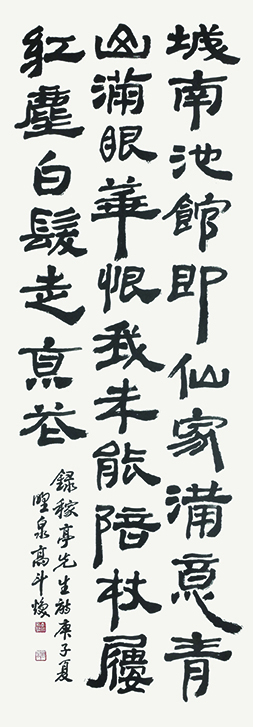 城南池館即仙家滿意青
山滿眼華恨我未能陪杖屨
紅塵白髮走京花
錄稼亭先生詩庚子夏
泉高斗煥